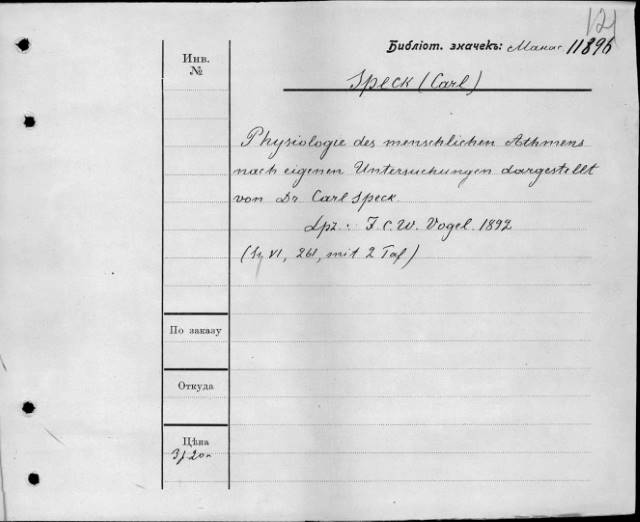 121
Библіот. значекъ: Манас. 11896
Инв.
№
Speck (Carl)
Physiologie des menschlichen Athmens
nach eigenen Untersuchungen dargestellt
von Dr. Carl Speck.
Lpz. : F. C. W. Vogel. 1892
VI, 261, mit 2 Taf)
По заказу
Откуда
Цѣна
3 р 20 к